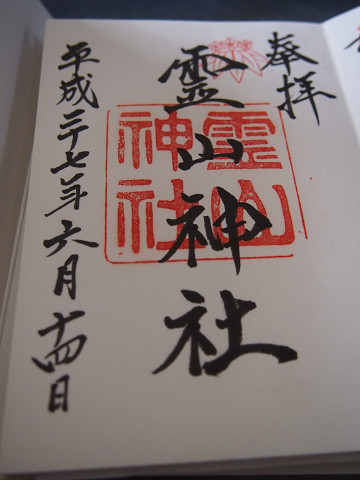 奉拝
霊山神社
霊山
神社
平成二十七年六月十四日